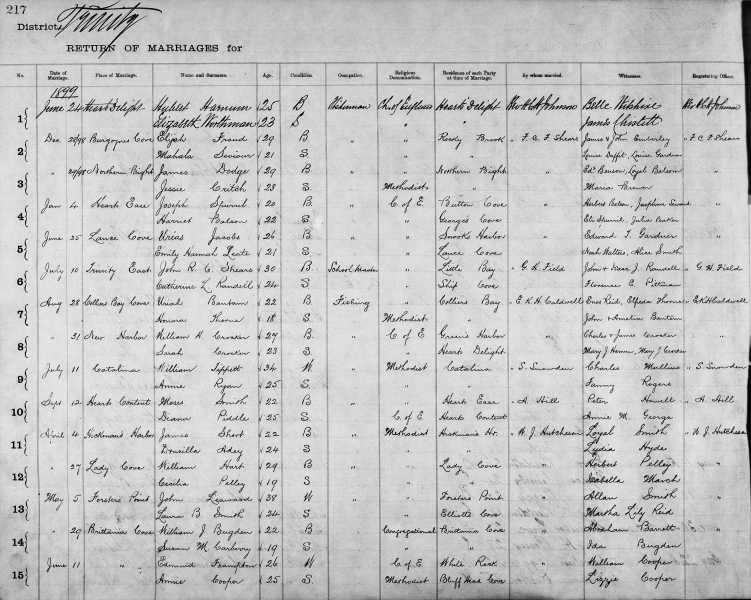 217
District, Trinity
RETURN OF MARRIAGES for
No. Date of Marriage. Place of Marriage. Name and Surname. Age. Condition. Occupation. Religious Denomination. Residence of each Party at time of Marriage. By whom married. Witnesses. Registering Officer.
1899
1 June 24 Heart's Delight Hubert Harnum 25 B Fisherman Ch. of England Heart's Delight Rev H C H Johnson Belle Wilshire Rev H C H Johnson
Elizabeth Worthman 23 S " " James
2 Dec 28/98 Burgoyne Cove Elijah Froud 29 B " " Reedy Brook " F C F Shears James & John Emberley " F C F Shears
Mahala 21 S " " Louise Gardner
3 " 29/98 Northern Bight James Dodge 29 B " " Northern Bight " Edd Benson, Loyal Belson "
Jessie Critch 23 S Methodists " Maria Brewer
4 Jan 4 Heart Ease Joseph Spurrel 20 B " C of E Button Cove " Herbert Balson, Josephine "
Harriet Balson 22 S " Georges Cove Eli Spurrel, Julia
5 June 25 Lance Cove Urias Jacobs 26 B " " Snooks Harbor " Edward T. Gardner "
Emily Hannah Leate 21 S " Lance Cove Noah Walters, Alice Smith
6 July 10 Trinity East John R. C. Shears 30 B School Master " Little Bay " G. H. Field John & Isaac J. Randell " G. H. Field
Catherine L Randell 24 S " Ship Cove Florence E. Pittman
7 Aug 28 Colliers Bay Cove Uriah Bantum 22 B Fishing " Colliers Bay " E K H Caldwell Enos Reid, Elfreda Thorne " E K H Caldwell
Honora Thorne 18 S Methodist " John & Amelia Bantum
8 " 31 New Harbor William H. Crocker 27 B " C of E Green's Harbor " Charles & James Crocker "
Sarah Crocker 23 S " Hearts Delight Mary J Crocker
9 July 11 Catalina William Tippett 34 W " Methodist Catalina " S. Snowden Charles Mullins " S. Snowden
Annie Ryan 25 S " " Fanny Rogers
10 Sept 12 Hearts Content Moses Smith 22 B " " Heart Ease " A Hill Peter Howell " A Hill
Diana Piddle 25 S C. of E Hearts Content Annie M. George
11 April 4 Hickman's Harbor James Short 22 B " Methodist Hickmans Hr. " W. J. Hutcheson Loyal Smith " W. J. Hutcheson
Druscilla Adey 24 S " " Lydia Hyde
12 " 27 Lady Cove William Hart 29 B " " Lady Cove " Herbert Pelley "
Cecilia Pelley 19 S " " Isabella March
13 May 5 Forsters Point John Leawood 38 W " " Forsters Point " Allan Smith "
Laura B. Smith 24 S " Elliotts Cove Martha Lily Reid
14 " 29 Brittania Cove William J Bugden 22 B Congregational Brittania Cove " Abraham Barrett "
Susan M Carberry 19 S " " Ida Bugden
15 June 11 " Edmund Frampton 26 W C. of E. White Rock " William Cooper "
Annie Cooper 25 S. Methodist Bluff Head Cove Lizzie Cooper